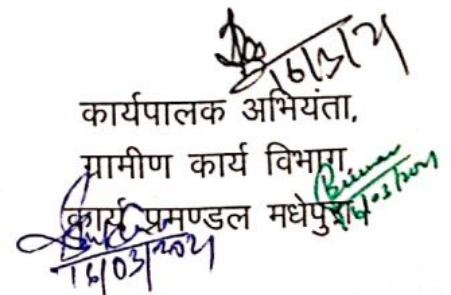 16/3/21
कार्यपालक अभियंता,
ग्रामीण कार्य विभाग,
कार्य प्रमण्डल मधेपुरा।
16/03/2021
16/03/2021